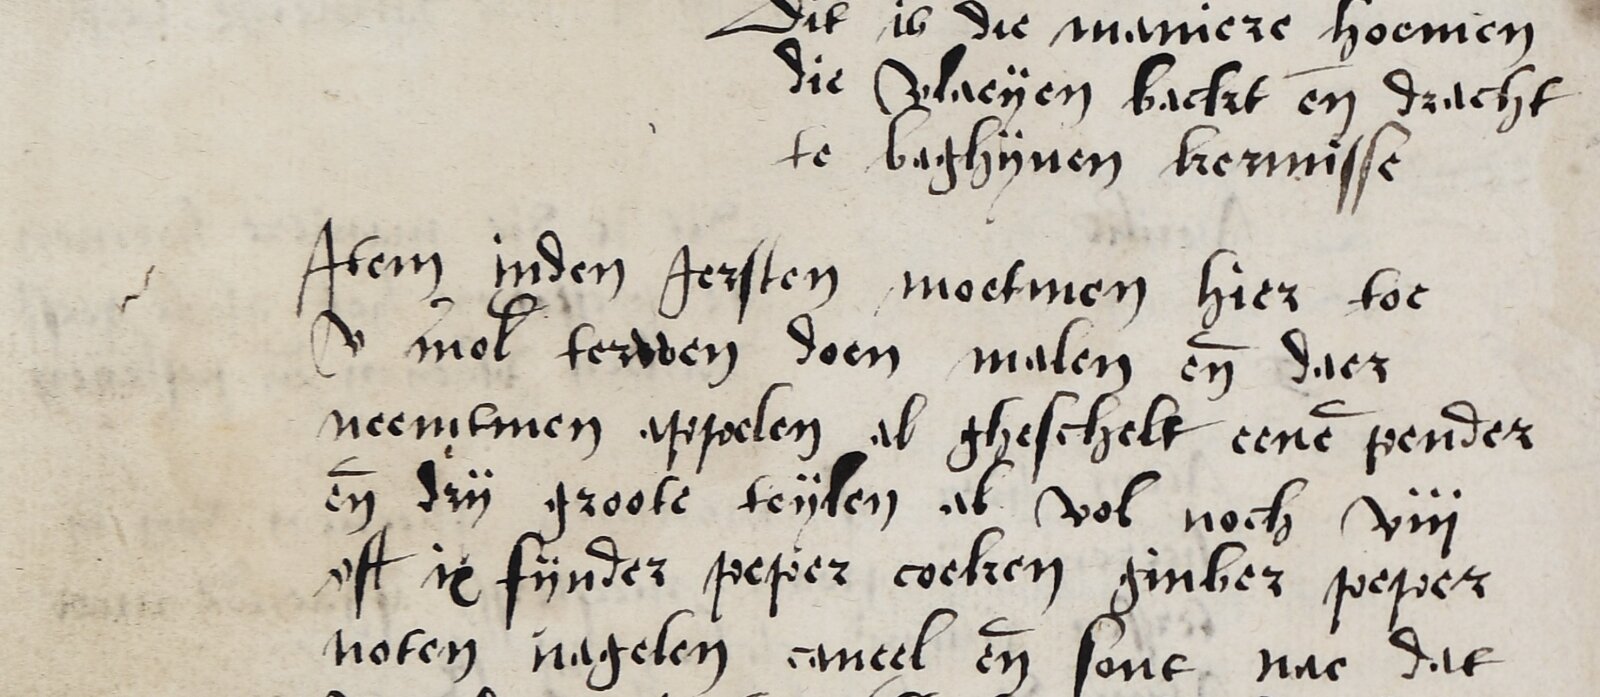 Dit is die maniere hoemen
die vlaeyen backt en̄ dracht
te baghijnen kermisse
Item inden Iersten moetmen hier toe
v mol terwen doen malen en̄ daer
neemtmen appelen al gheschelt eenē pender
en̄ drij groote teylen al vol noch viij
oft ix sijnder peper coeken ginber peper
noten nagelen caneel en̄ sout nae dat